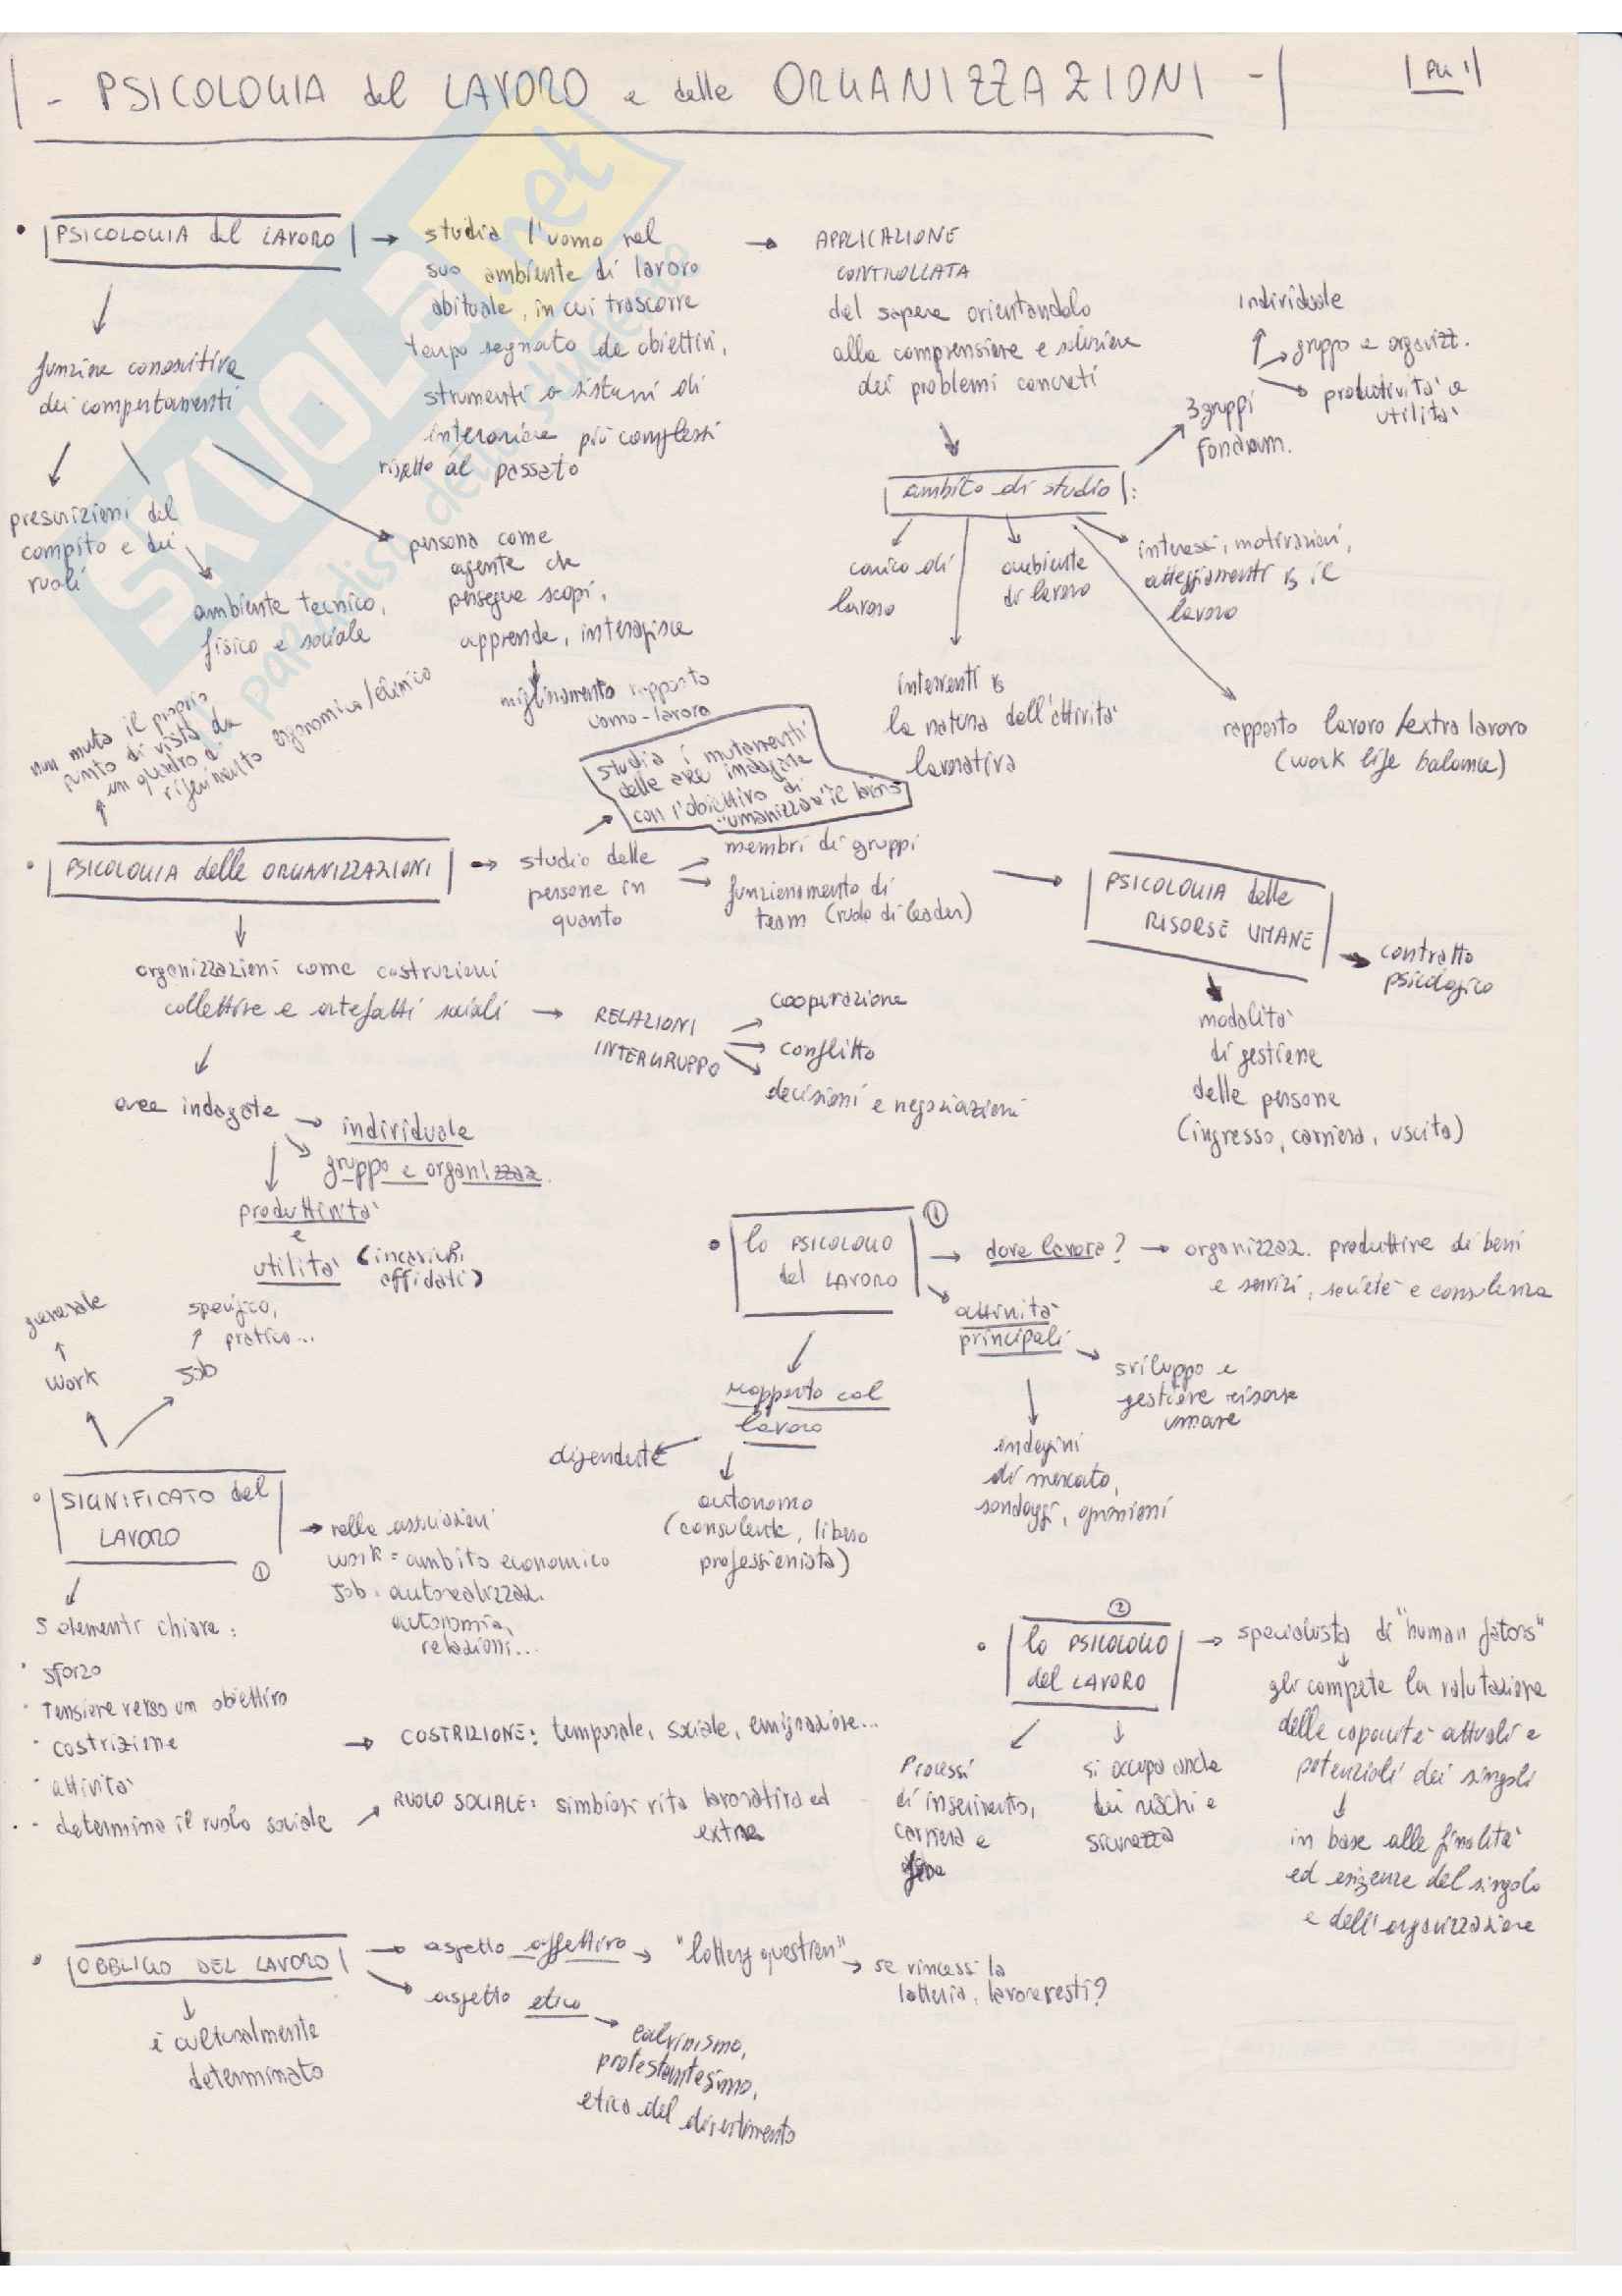 - PSICOLOGIA del LAVORO e delle ORGANIZZAZIONI -
PG 1
PSICOLOGIA del LAVORO
studia l'uomo nel
suo ambiente di lavoro
abituale, in cui trascorre
tempo segnato da obiettivi,
strumenti e sistemi di
interazione più complessi
rispetto al passato
APPLICAZIONE
CONTROLLATA
del sapere orientandolo
alla comprensione e soluzione
dei problemi concreti
individuale
gruppo e organizz.
produttività e
utilità
3 gruppi
fondam.
funzione conoscitiva
dei comportamenti
prescrizioni del
compito e dei
ruoli
ambiente tecnico,
fisico e sociale
persona come
agente che
persegue scopi,
apprende, interagisce
miglioramento rapporto
uomo-lavoro
ambito di studio:
carico di
lavoro
ambiente
di lavoro
interessi, motivazioni,
atteggiamenti vs il
lavoro
interventi vs
la natura dell'attività
lavorativa
rapporto lavoro/extra lavoro
(work life balance)
non muta il proprio
punto di vista da
un quadro di
riferimento ergonomico/clinico
studia i mutamenti
delle aree indagate
con l'obiettivo di
"umanizzare" il lavoro
PSICOLOGIA delle ORGANIZZAZIONI
studio delle
persone in
quanto
membri di gruppi
funzionamento di
team (ruolo di leader)
PSICOLOGIA delle
RISORSE UMANE
contratto
psicologico
modalità
di gestione
delle persone
(ingresso, carriera, uscita)
organizzazioni come costruzioni
collettive e artefatti sociali
RELAZIONI
INTERGRUPPO
cooperazione
conflitto
decisioni e negoziazioni
aree indagate
individuale
gruppo e organizzaz.
produttività
e
utilità (incarichi
affidati)
lo PSICOLOGO
del LAVORO
1
dove lavora?
organizzaz. produttive di beni
e servizi, società e consulenza
attività
principali
sviluppo e
gestione risorse
umane
indagini
di mercato,
sondaggi, opinioni
rapporto col
lavoro
dipendente
autonomo
(consulente, libero
professionista)
generale
work
specifico,
pratico...
job
SIGNIFICATO del
LAVORO
1
nelle associazioni
work = ambito economico
job = autorealizzaz.
autonomia,
relazioni...
5 elementi chiave:
· sforzo
· tensione verso un obiettivo
· costrizione
· attività
· - determina il ruolo sociale
COSTRIZIONE: temporale, sociale, emignazione...
RUOLO SOCIALE: simbiosi vita lavorativa ed
extra
2
lo PSICOLOGO
del LAVORO
specialista di "human fators"
gli compete la valutazione
delle capacità attuali e
potenziali dei singoli
in base alle finalità
ed esigenze del singolo
e dell'organizzazione
Processi
di inserimento,
carriera e
si occupa anche
dei rischi e
sicurezza
OBBLIGO DEL LAVORO
aspetto affettivo
"lottery question"
se vincessi la
lotteria, lavoreresti?
aspetto etico
calvinismo,
protestantesimo,
etica del divertimento
è culturalmente
determinato
SKUOLA.net
il paradiso dello studente